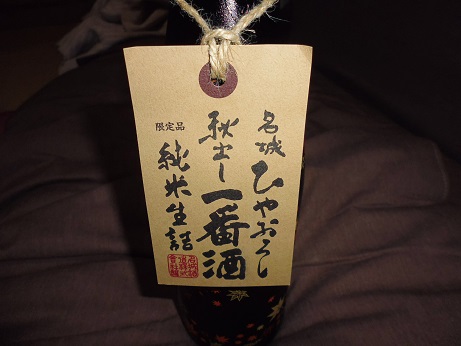 名城
ひやおろし
秋出し一番酒
限定品
純米生詰